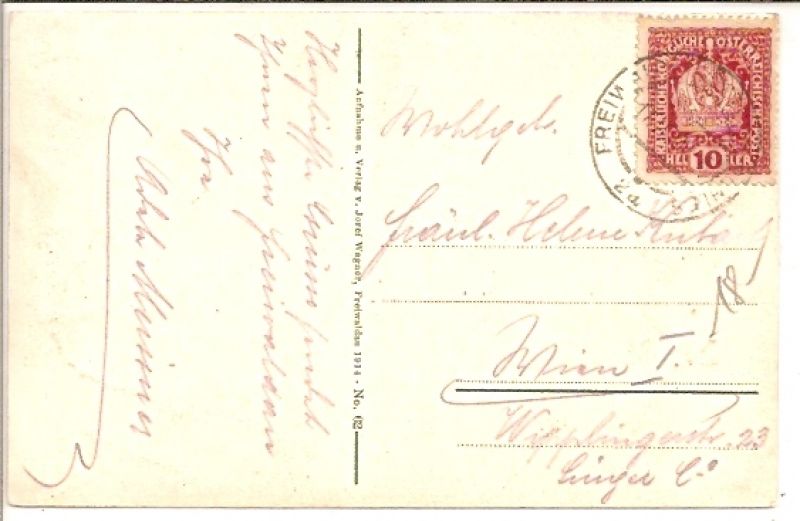 Herzliche Grüsse sendet
Ihnen aus Freiwaldau
Ihr
Aufnahme u. Verlag v. Josef Wagner, Freiwaldau 1914 - No. 62
KAISERLICHE KÖNIGLICHE ÖSTERREICHISCHE POST
HELLER
10
FREIW
Wohlgeb.
Fräul. Helene
18
Wien I.
Wipplingerstr. 23
Singer Co